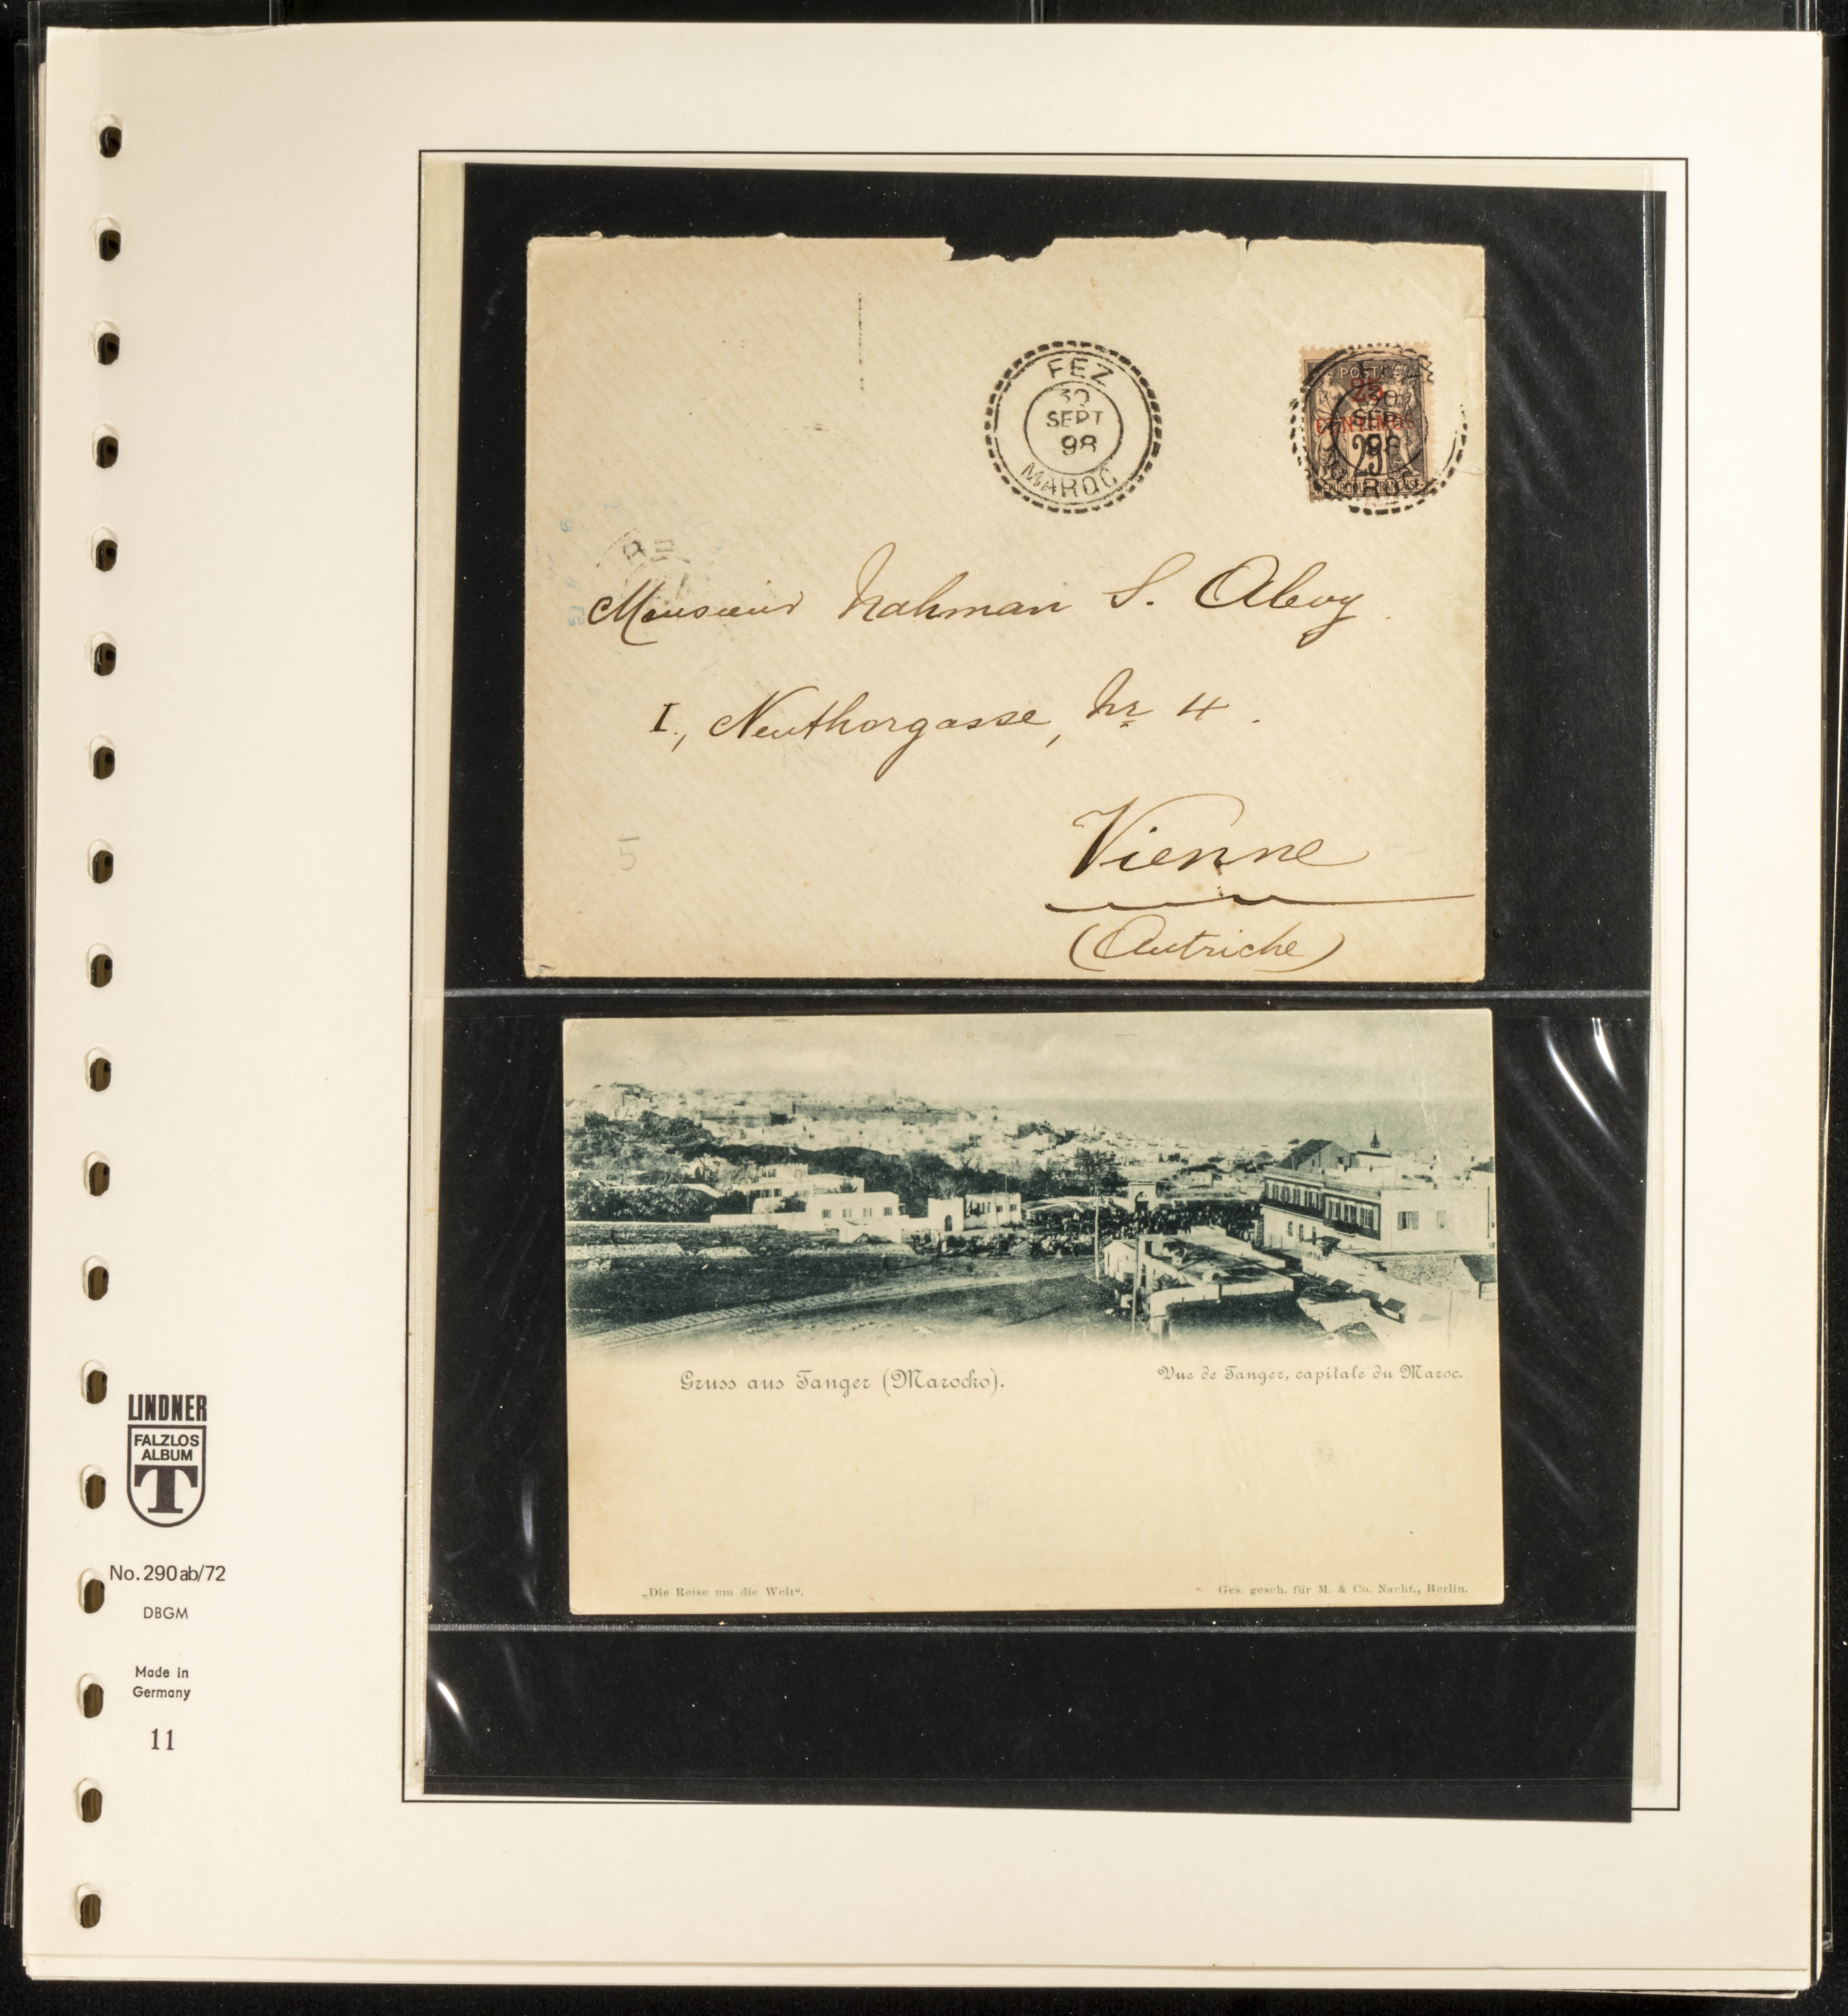 FEZ
30
SEPT
98
MAROC
POSTES
25
CENTIMOS
30
SEPT
98
25
REPUBLIQUE FRANCAISE
Monsieur Nahman S. Alevy
I., Neuthorgasse, Nr 4.
5
Vienne
(Autriche)
Gruss aus Tanger (Marocko).
Vue de Tanger, capitale du Maroc.
„Die Reise um die Welt“.
Ges. gesch. für M. & Co. Nachf., Berlin.
LINDNER
FALZLOS
ALBUM
T
No. 290 ab/72
DBGM
Made in
Germany
11